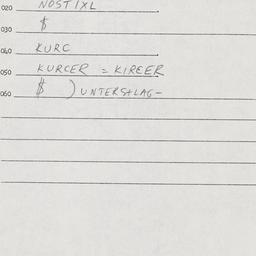 020 NOSTIXL
030 $
040 KURC
050 KURCER = KIREER
060 $ ) UNTERSHLAG-